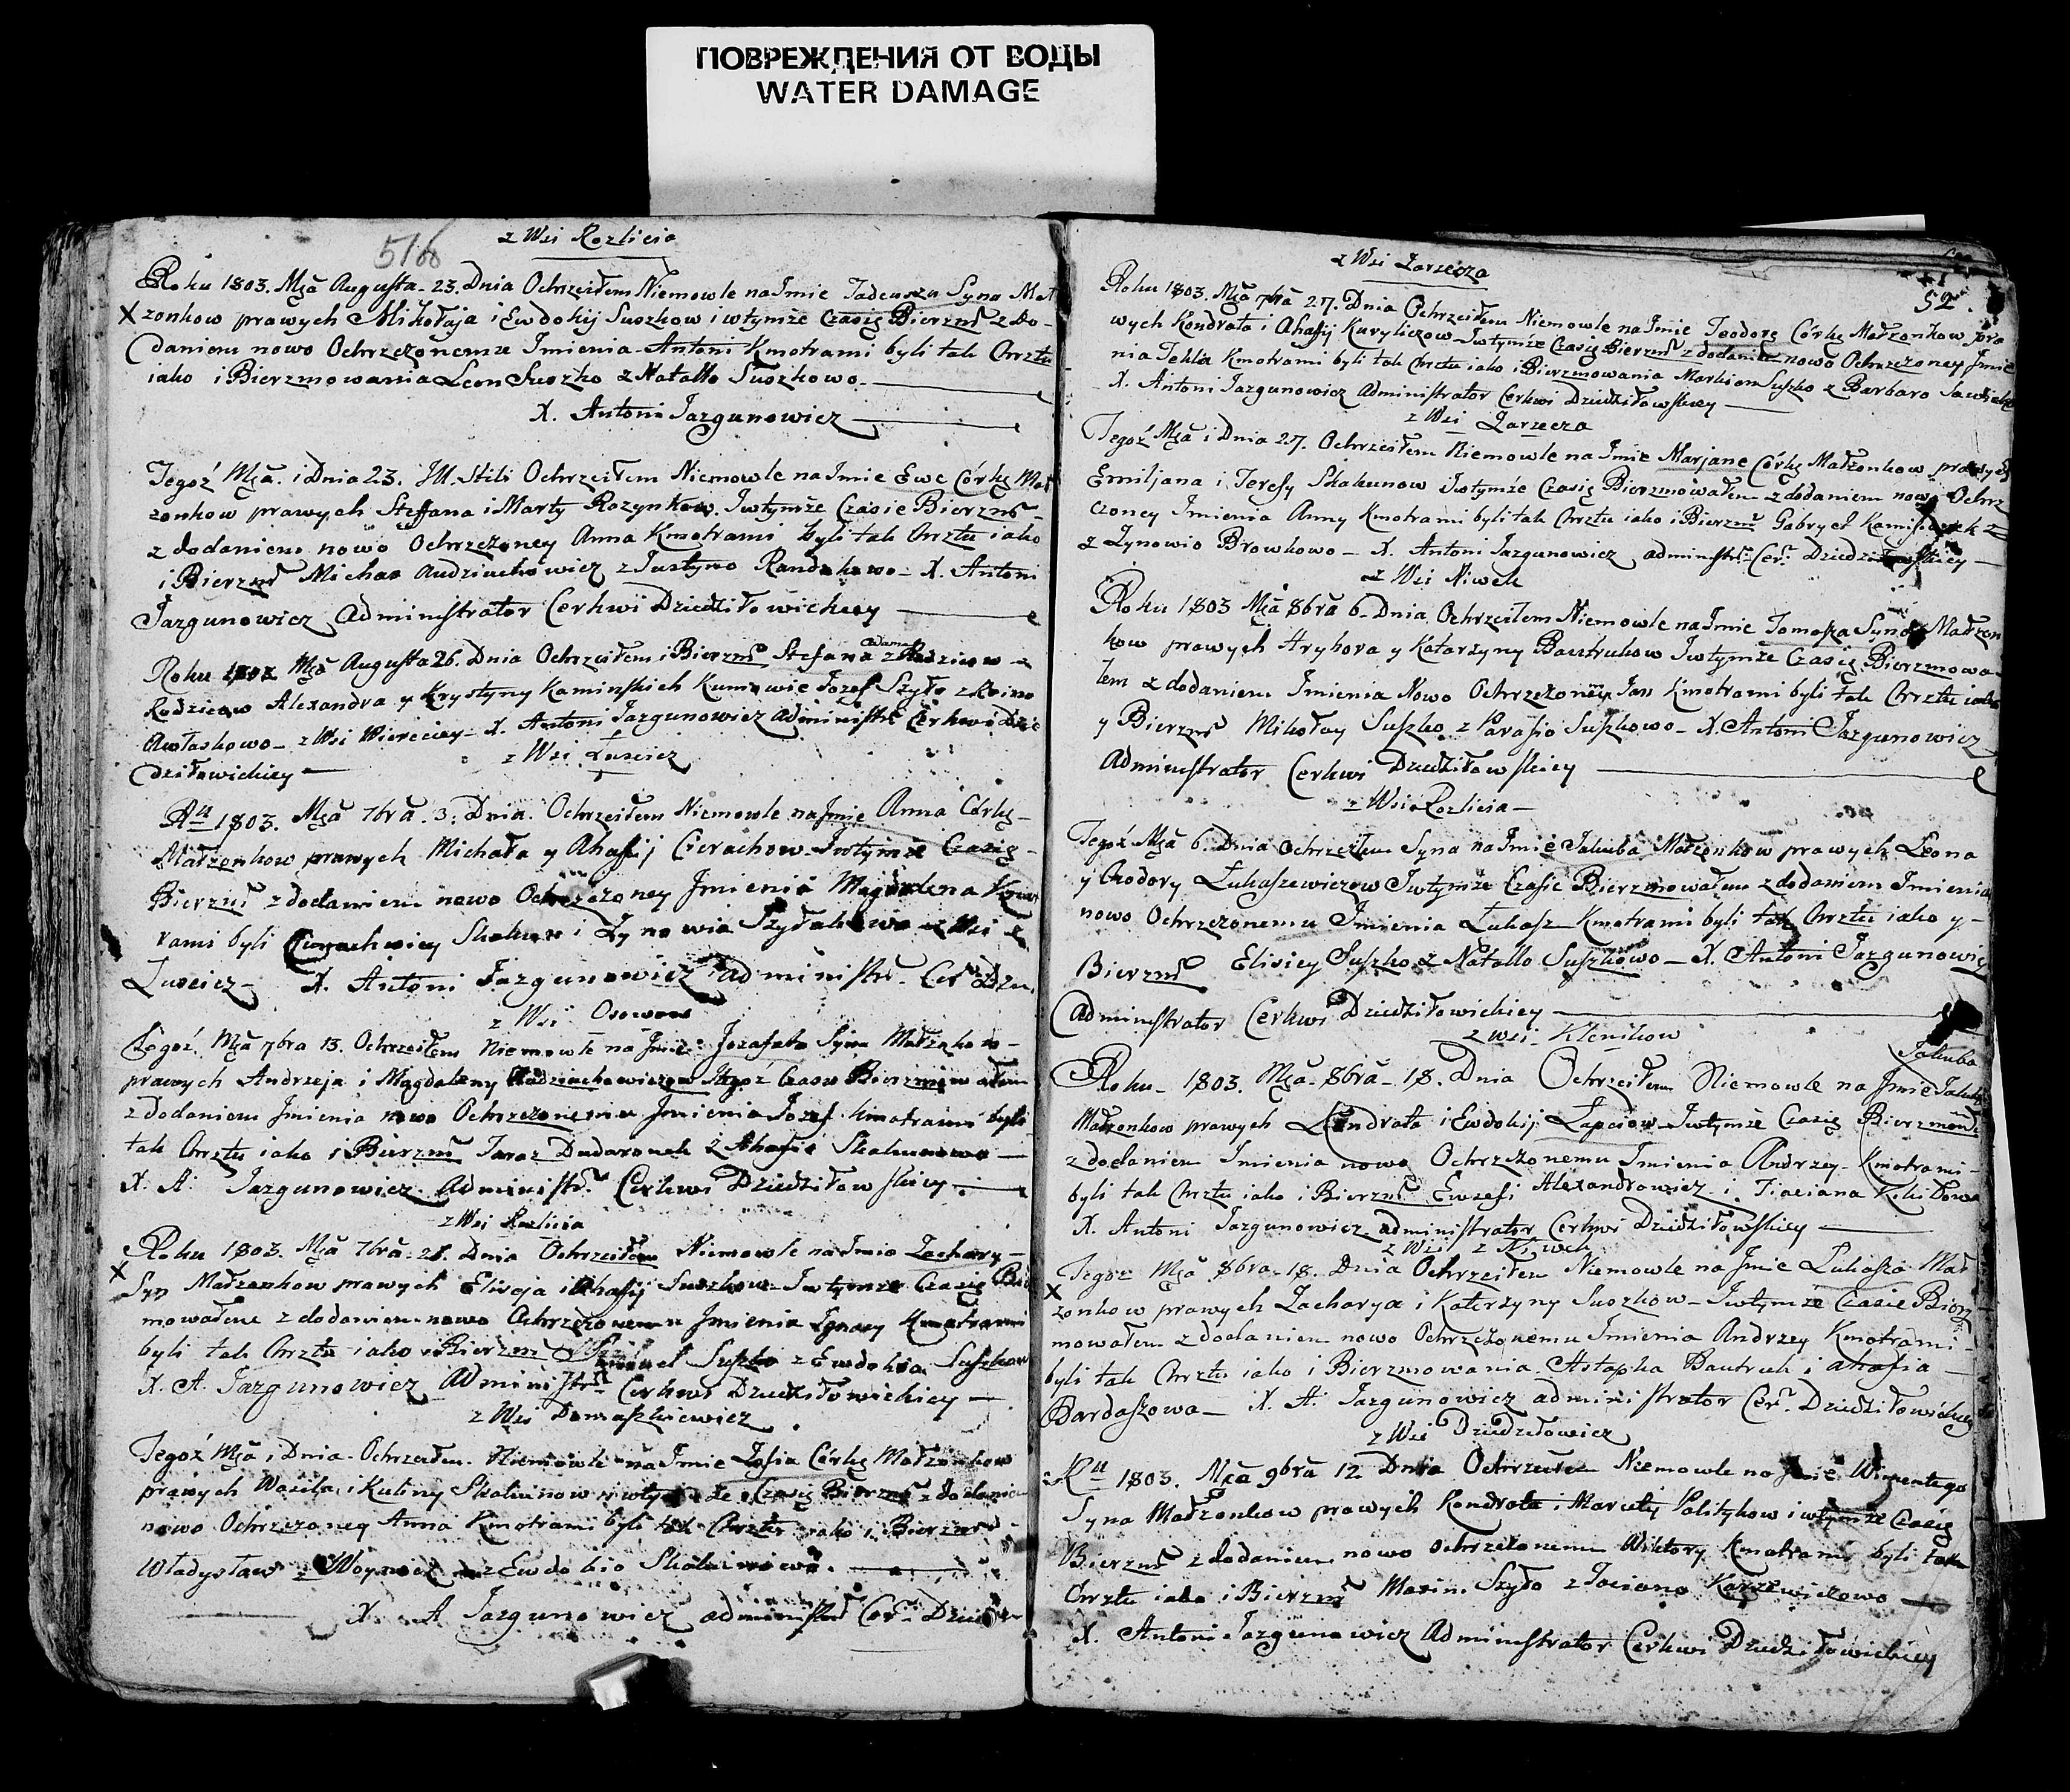 ПОВРЕЖДЕНИЯ ОТ ВОДЫ
WATER DAMAGE
516
z Wsi Rozlicia
Roku 1803. Mca Augusta 23. Dnia Ochrzciłem Niemowle na Imie Tadeusza Syna Mał
X żonkow prawych Mikołaja i Ewdokij Suszkow i wtymże Czasię Bierzm z Do-
daniem nowo Ochrzczonemu Imienia Antoni Kmotrami byli tak Chrztu
iako i Bierzmowania Leon Suszko z Natallo Suszkowo
X. Antoni Jazgunowicz
Tegoż Mca i Dnia 23. Ochrzciłem Niemowle na Imie Ewe Córkę Mał
żonkow prawych Steffana i Marty Rozynkow. Iwtymże Czasie Bierzm
z dodaniem nowo Ochrzczoney Anna Kmotrami byli tak Chrztu iako
i Bierzm Michał Audziuchowicz z Justyno X. Antoni
Jazgunowicz Administrator Cerkwi Dziedziłowickiey
Roku Mca Augusta 26. Dnia Ochrzciłem i Bierzm Stefana Adama z Rodzicow
Rodzicow Alexandra y Krystyny Kaminskich Kumowie Jozef Szyło
z Wsi X. Antoni Jazgunowicz Administr Cerkwi Dzie
dziłowickiey
z Wsi Łuscicz
Ru 1803. Mca 7bra. 3. Dnia. Ochrzciłem Niemowle na Imie Anna Córkę
Małżonkow prawych Michała y Ahafij Cierachow Iwtymże Czasię
Bierzm z dodaniem nowo Ochrzczoney Imienia Magdalena Kmot
rami byli Skakun i Zynowia z Wsi
Łuscicz X. Antoni Jazgunowicz Administr. Cer Dzie
z Wsi Osowow
Tegoż Mca 7bra 13. Ochrzciłem Niemowle na Imie Jozafata Syna Małżonkow
prawych Andrzeja i Magdaleny Audziuchowiczow Tegoż Czasu Bierzmowałem
z dodaniem Imienia nowo Ochrzczonemu Imienia Jozef Kmotrami byli
tak Chrztu iako i Bierzm Taras Dudaronek z Ahafio Skakunowo
X. A. Jazgunowicz Administr. Cerkwi Dziedziłowskiey
z Wsi Rozlicia
Roku 1803. Mca 7bra 21. Dnia Ochrzciłem Niemowle na Imie Zachary
X Syn Małżonkow prawych Eliseja i Ahafij Suszkow Iwtymże Czasię Bierz
mowałem z dodaniem nowo Ochrzczonemu Imienia Ignacy Kmotrami
byli tak Chrztu iako i Bierzm Suszko z Ewdokia Suszkow
X. A. Jazgunowicz Administr Cerkwi Dziedziłowickiey
z Wsi Domaszkiewicz
Tegoż Mca i Dnia Ochrzciłem Niemowle na Imie Zofia Córkę Małżonkow
prawych Wasila i Kuliny Skakunow iwtymże Czasię Bierzm z dodaniem
nowo Ochrzczoney Anna Kmotrami byli tak Chrztu iako i Bierzm
Władysław z Ewdokio Skakunowo.
X. A Jazgunowicz administr Cer. Dziedz
z Wsi Zarzecza
52.
Roku 1803. Mca 7bra 27. Dnia Ochrzciłem Niemowle na Imie Teodorę Córkę Małżonkow pra
wych Kondrata i Ahafij Kuryliczow Iwtymże Czasię Bierzm z dodaniem nowo Ochrzczoney Imie
nia Tekla Kmotrami byli tak Chrztu iako i Bierzmowania Markian Suszko z Barbaro
X. Antoni Jazgunowicz Administrator Cerkwi Dziedziłowskiey
z Wsi Zarzecza
Tegoż Mca i Dnia 27. Ochrzciłem Niemowle na Imie Marjane Córkę Małżonkow prawych
Emiljana i Teresy Skakunow Iwtymże Czasię Bierzmowałem z dodaniem nowo Ochrz
czoney Imienia Anny Kmotrami byli tak Chrztu iako i Bierzm Gabryel
z Zynowio Browkowo X. Antoni Jazgunowicz administr. Cer. Dziedziłowskiey
z Wsi Niwek
Roku 1803 Mca 8bra 6. Dnia Ochrzciłem Niemowle na Imie Tomasza Syna Małżon
kow prawych Hryhora y Katarzyny Bautrukow Iwtymże Czasię Bierzmowa
łem z dodaniem Imienia Nowo Ochrzczoney Jan Kmotrami byli tak Chrztu iako
y Bierzm Mikołay Suszko z Parasio Suszkowo X. Antoni Jazgunowicz
Administrator Cerkwi Dziedziłowskiey
z Wsi Rozlicia
Tegoż Mca 6. Dnia Ochrzciłem Syna na Imie Jakuba Małżonkow prawych Leona
y Chodory Łukaszewiczow Iwtymże Czasie Bierzmowałem z dodaniem Imienia
nowo Ochrzczonemu Imienia Łukasz Kmotrami byli tak Chrztu iako y
Bierzm Elisiey Suszko z Natallo Suszkowo X. Antoni Jazgunowicz
Administrator Cerkwi Dziedziłowickiey
z wsi Klenikow
Jakuba
Roku 1803. Mca 8bra 18. Dnia Ochrzciłem Niemowle na Imie Jakuba
Małżonkow prawych Kondrata i Ewdokij Łapciow Iwtymże Czasię Bierzmow
z dodaniem Imienia nowo Ochrzczonemu Imienia Andrzey Kmotrami
byli tak Chrztu iako i Bierzm Ewzefi Alexandrowicz i Ticiana
X. Antoni Jazgunowicz administrator Cerkwi Dziedziłowskiey
z Wsi z Niwek
Tegoz Mca 8bra 18. Dnia Ochrzciłem Niemowle na Imie Łukasza Mał
X żonkow prawych Zacharya i Katerzyny Suszkow Iwtymże Czasie Bierz
mowałem z dodaniem nowo Ochrzczonemu Imienia Andrzey Kmotrami
byli tak Chrztu iako i Bierzmowania Astapka Bautruk i ahafia
Bardaszowa X. A. Jazgunowicz administrator Cer. Dziedziłowickiey
z Wsi Dziedziłowicz
Ru 1803. Mca 9bra 12 Dnia Ochrzciłem Niemowle na Imie Wincentego
Syna Małżonkow prawych Kondrata i Marcelij Politykow iwtymże Czasię
Bierzm z dodaniem nowo ochrzczonemu Wiktory Kmotrami byli tak
Chrztu iako i Bierzm Maxim Szydo z Taciano
X. Antoni Jazgunowicz Administrator Cerkwi Dziedziłowickiey